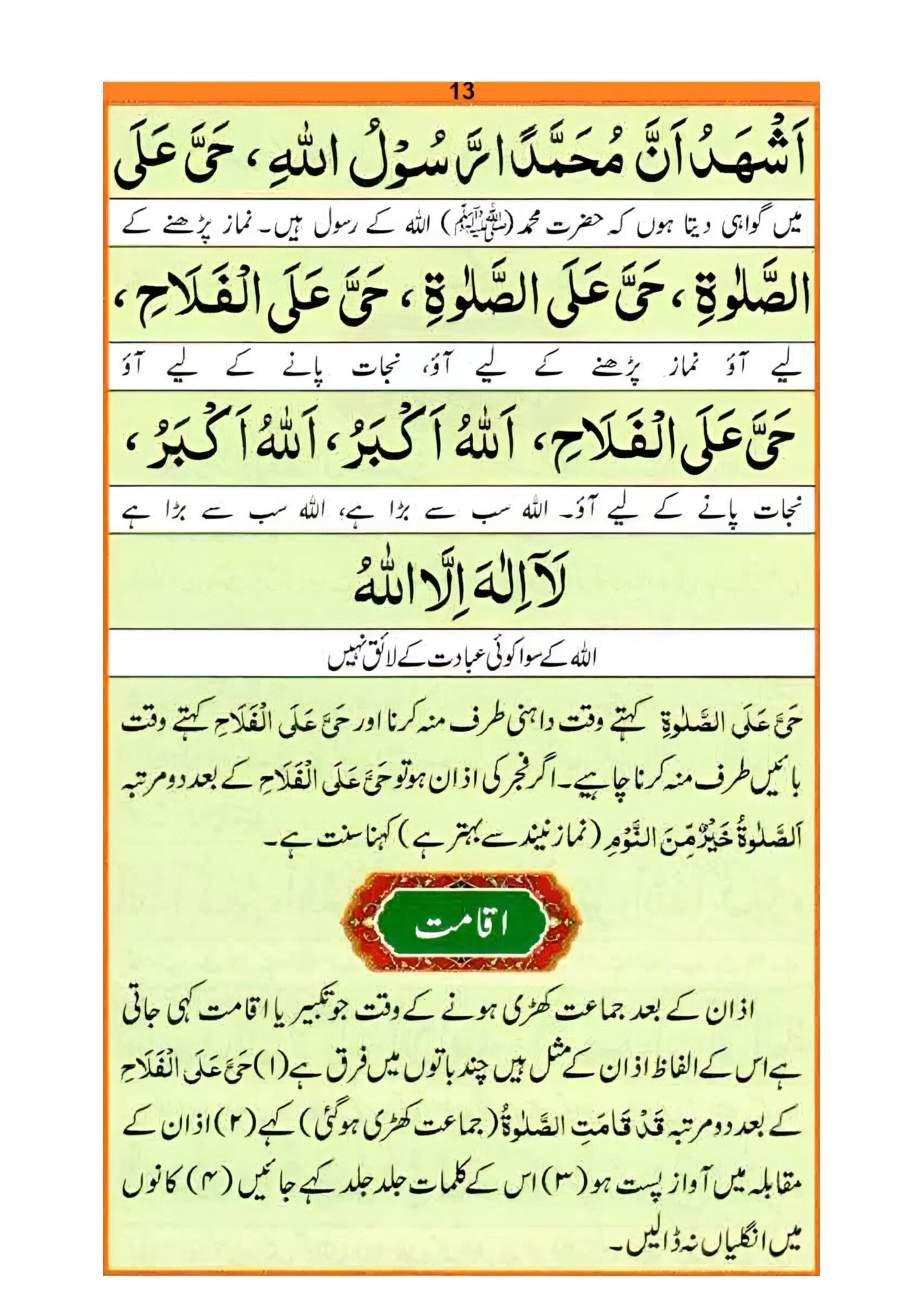 13
اَشْهَدُ اَنَّ مُحَمَّدًا رَّسُوْلُ اللهِ ، حَیَّ عَلَی
میں گواہی دیتا ہوں کہ حضرت محمد (ﷺ) اللہ کے رسول ہیں۔ نماز پڑھنے کے
الصَّلٰوةِ ، حَیَّ عَلَی الصَّلٰوةِ ، حَیَّ عَلَی الْفَلَاحِ ،
لیے آؤ نماز پڑھنے کے لیے آؤ، نجات پانے کے لیے آؤ
حَیَّ عَلَی الْفَلَاحِ، اَللهُ اَكْبَرُ، اَللهُ اَكْبَرُ ،
نجات پانے کے لیے آؤ۔ اللہ سب سے بڑا ہے، اللہ سب سے بڑا ہے
لَآ اِلٰهَ اِلَّا اللهُ
اللہ کے سوا کوئی عبادت کے لائق نہیں
حَیَّ عَلَی الصَّلٰوةِ کہتے وقت داہنی طرف منہ کرنا اور حَیَّ عَلَی الْفَلَاحِ کہتے وقت
بائیں طرف منہ کرنا چاہیے۔ اگر فجر کی اذان ہو تو حَیَّ عَلَی الْفَلَاحِ کے بعد دو مرتبہ
اَلصَّلٰوةُ خَیْرٌ مِّنَ النَّوْمِ (نماز نیند سے بہتر ہے) کہنا سنت ہے۔
اقامت
اذان کے بعد جماعت کھڑی ہونے کے وقت جو تکبیر یا اقامت کہی جاتی
ہے اس کے الفاظ اذان کے مثل ہیں چند باتوں میں فرق ہے (۱) حَیَّ عَلَی الْفَلَاحِ
کے بعد دو مرتبہ قَدْ قَامَتِ الصَّلٰوةُ (جماعت کھڑی ہو گئی) کہے (۲) اذان کے
مقابلہ میں آواز پست ہو (۳) اس کے کلمات جلد جلد کہے جائیں (۴) کانوں
میں انگلیاں نہ ڈالیں۔